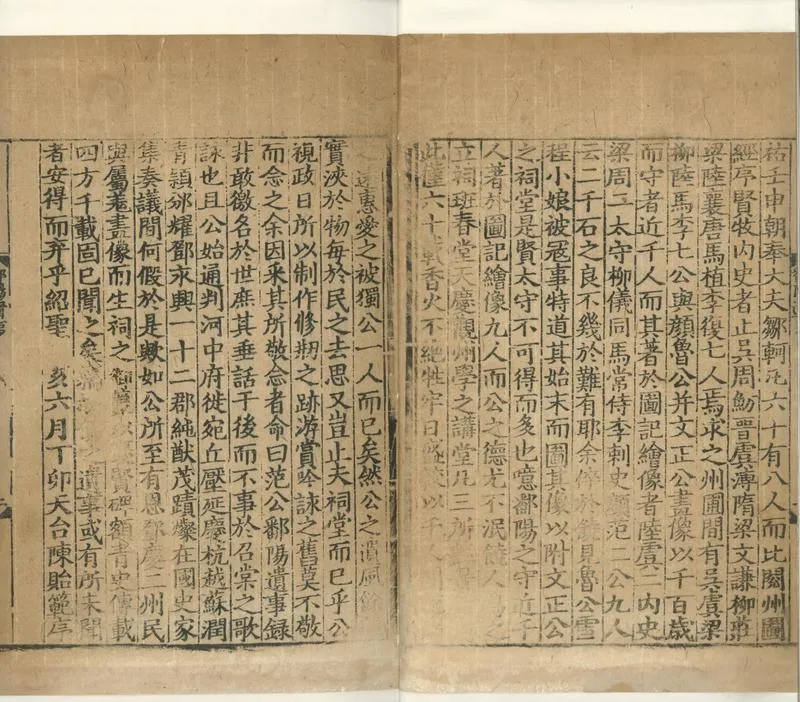 祐壬申朝奉大夫鄒軻凡六十有八人而比閱州圖
經序賢牧內史者止吳周魴晉虞溥隋梁文謙柳莊
梁陸襄唐馬植李復七人焉求之州圃間有吳虞梁
柳陸馬李七公與顏魯公并文正公畫像以千百歲
而守者近千人而其著於圖記繪像者陸虞二內史
梁周二太守柳儀同馬常侍李刺史顏范二公九人
云二千石之良不幾於難有耶余倅於饒見魯公雪
程小娘被冦事特道其始末而圖其像以附文正公
之祠堂是賢太守不可得而多也噫鄱陽之守近千
人著於圖記繪像九人而公之德尤不泯饒人
立祠班春堂天慶觀州學之講堂凡三所
此僅六十載香火不絕牲牢日盛
遺惠愛之被獨公一人而已矣然公之
實浹於物每於民之去思又豈止夫祠堂而已乎公
視政日所以制作修剏之跡游賞吟詠之舊莫不敬
而念之余因采其所敬念者命曰范公鄱陽遺事録
非敢徼名於世庶其垂話千後而不事於召棠之歌
詠也且公始通判河中府徙宛丘壓延慶杭越蘇潤
青潁邠耀鄧永興一十二郡純猷茂蹟燦在國史家
集奏議間何假於是歟如公所至有恩邠慶二州民
與屬羌畫像而生祠之 賢碑額青史傳載
四方千載固已聞之矣 遺事或有所未聞
者安得而弃乎紹聖 亥六月丁卯天台陳貽範序